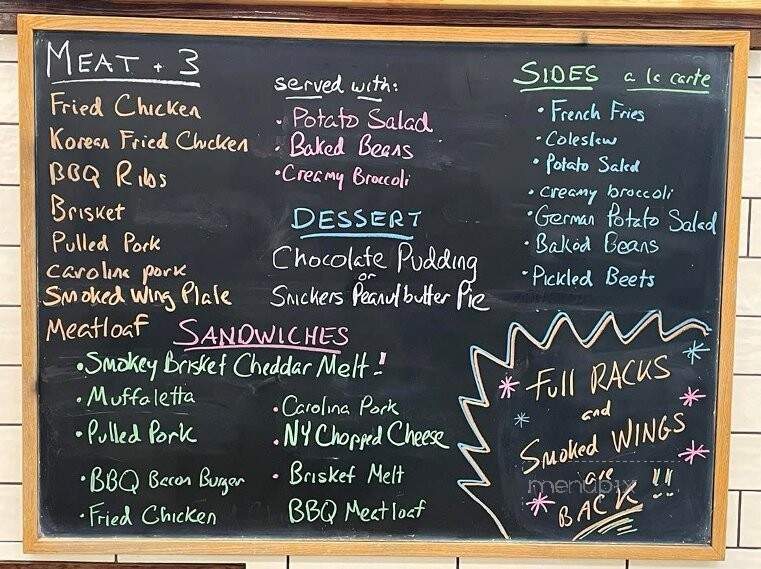 MEAT + 3
Fried Chicken
Korean Fried Chicken
BBQ Ribs
Brisket
Pulled Pork
Carolina pork
Smoked Wing Plate
Meatloaf
served with:
• Potato Salad
• Baked Beans
• Creamy Broccoli
DESSERT
Chocolate Pudding
or
Snickers Peanutbutter Pie
SIDES a la carte
• French Fries
• Coleslaw
• Potato Salad
• creamy broccoli
• German Potato Salad
• Baked Beans
• Pickled Beets
SANDWICHES
• Smokey Brisket Cheddar Melt!
• Muffaletta
• Pulled Pork
• BBQ Bacon Burger
• Fried Chicken
• Carolina Pork
• NY Chopped Cheese
• Brisket Melt
BBQ Meatloaf
* Full RACKS *
and
* Smoked WINGS
are
* BACK !! *
menupix